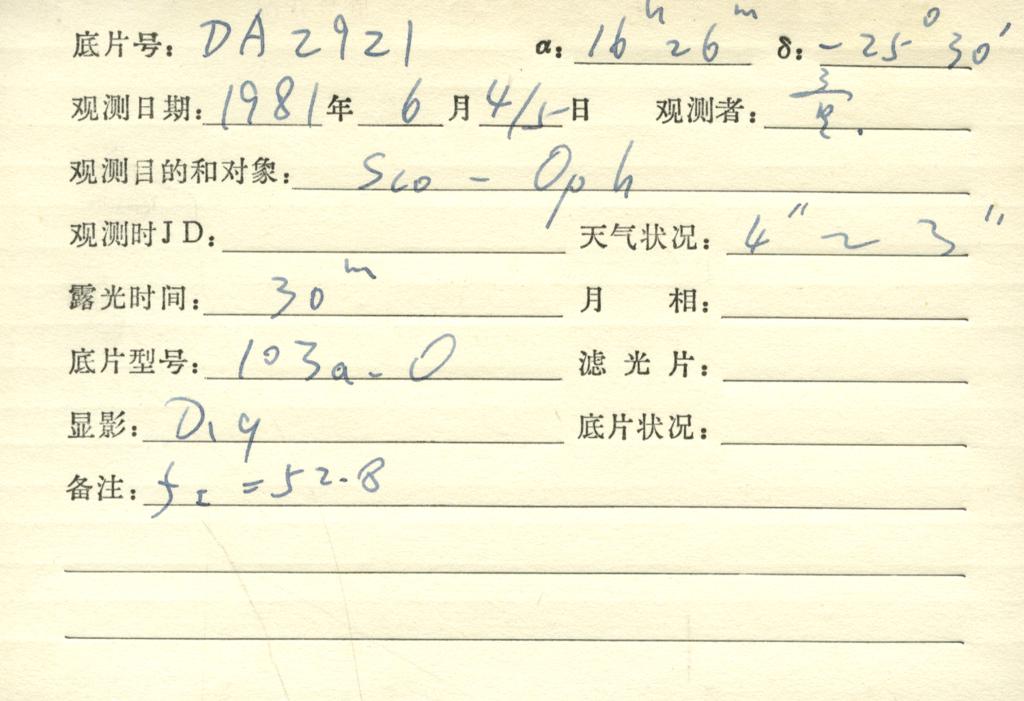 底片号: DA2921 α: 16ʰ26ᵐ δ: -25°30′
观测日期: 1981年 6月4/5日 观测者:
观测目的和对象: Sco - Oph
观测时JD: 天气状况: 4″~3″
露光时间: 30ᵐ 月 相:
底片型号: 103a-O 滤 光 片:
显影: D19 底片状况:
备注: fɪ = 52.8